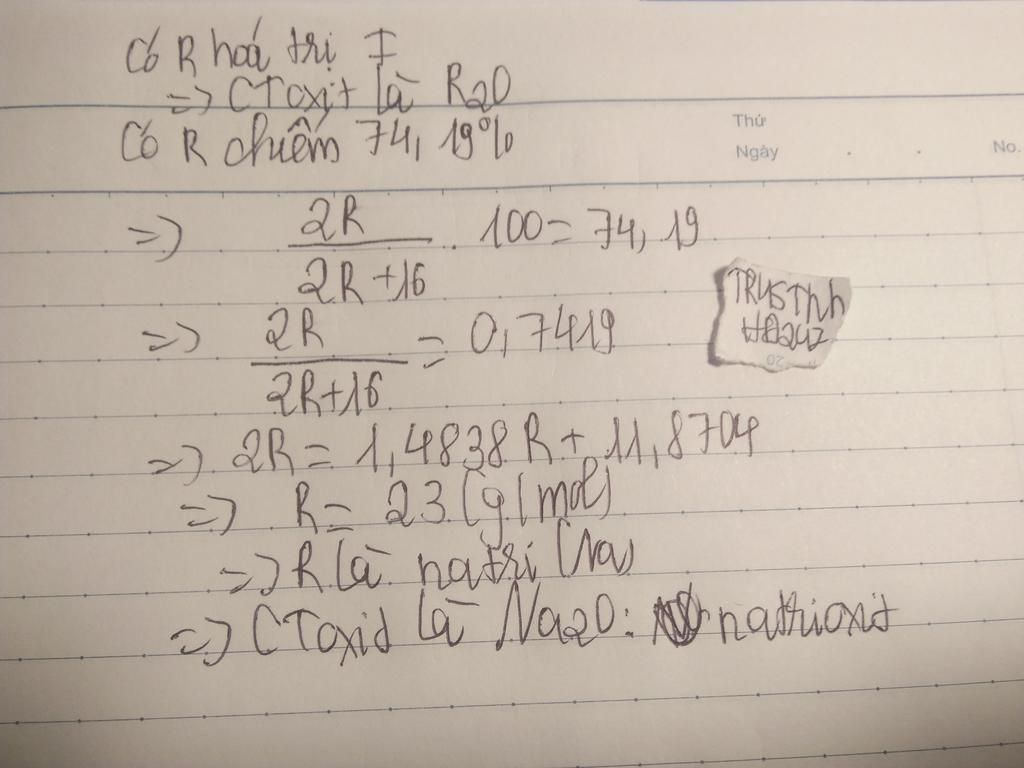 Có R hoá trị I
=> CToxit là R2O
Có R chiếm 74,19%
Thứ
Ngày
No.
=> 2R / 2R+16 . 100 = 74,19
=> 2R / 2R+16 = 0,7419
TRUSThh
=> 2R = 1,4838R + 11,8704
=> R = 23 (g/mol)
=> R là natri (Na)
=> CToxit là Na2O: natrioxit